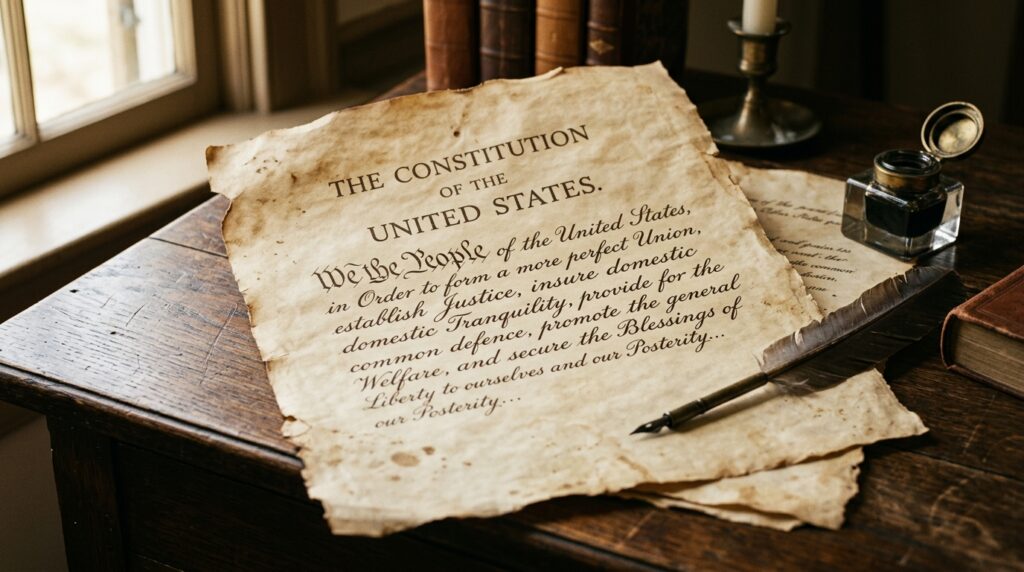 THE CONSTITUTION
OF THE
UNITED STATES.
We the People of the United States,
in Order to form a more perfect Union,
establish Justice, insure domestic
domestic Tranquility, provide for the
common defence, promote the general
Welfare, and secure the Blessings of
Liberty to ourselves and our Posterity...
our Posterity...
common